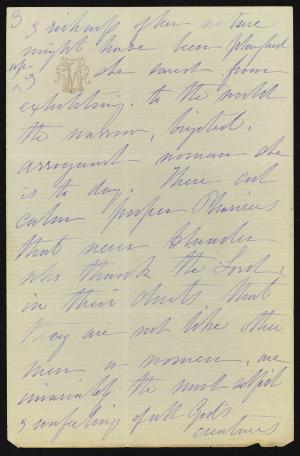 3
& richness of her nature
might have been ploughed
up & she saved from
exhibiting. to the world
the narrow, bigoted,
arrogant woman she
is to day. These cool
calm proper Pharisees
that never blunder
who thank the Lord,
in their closets, that
they are not like other
men or women, are
invariably the most selfish
& unfeeling of all God's
creatures